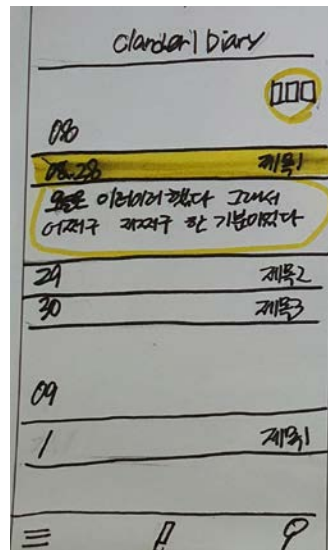 Clander1 Diary
08
08.28 제목1
오늘은 이러이러했다 그래서
어쩌구 저쩌구 한 기분이었다
29 제목2
30 제목3
09
1 제목1